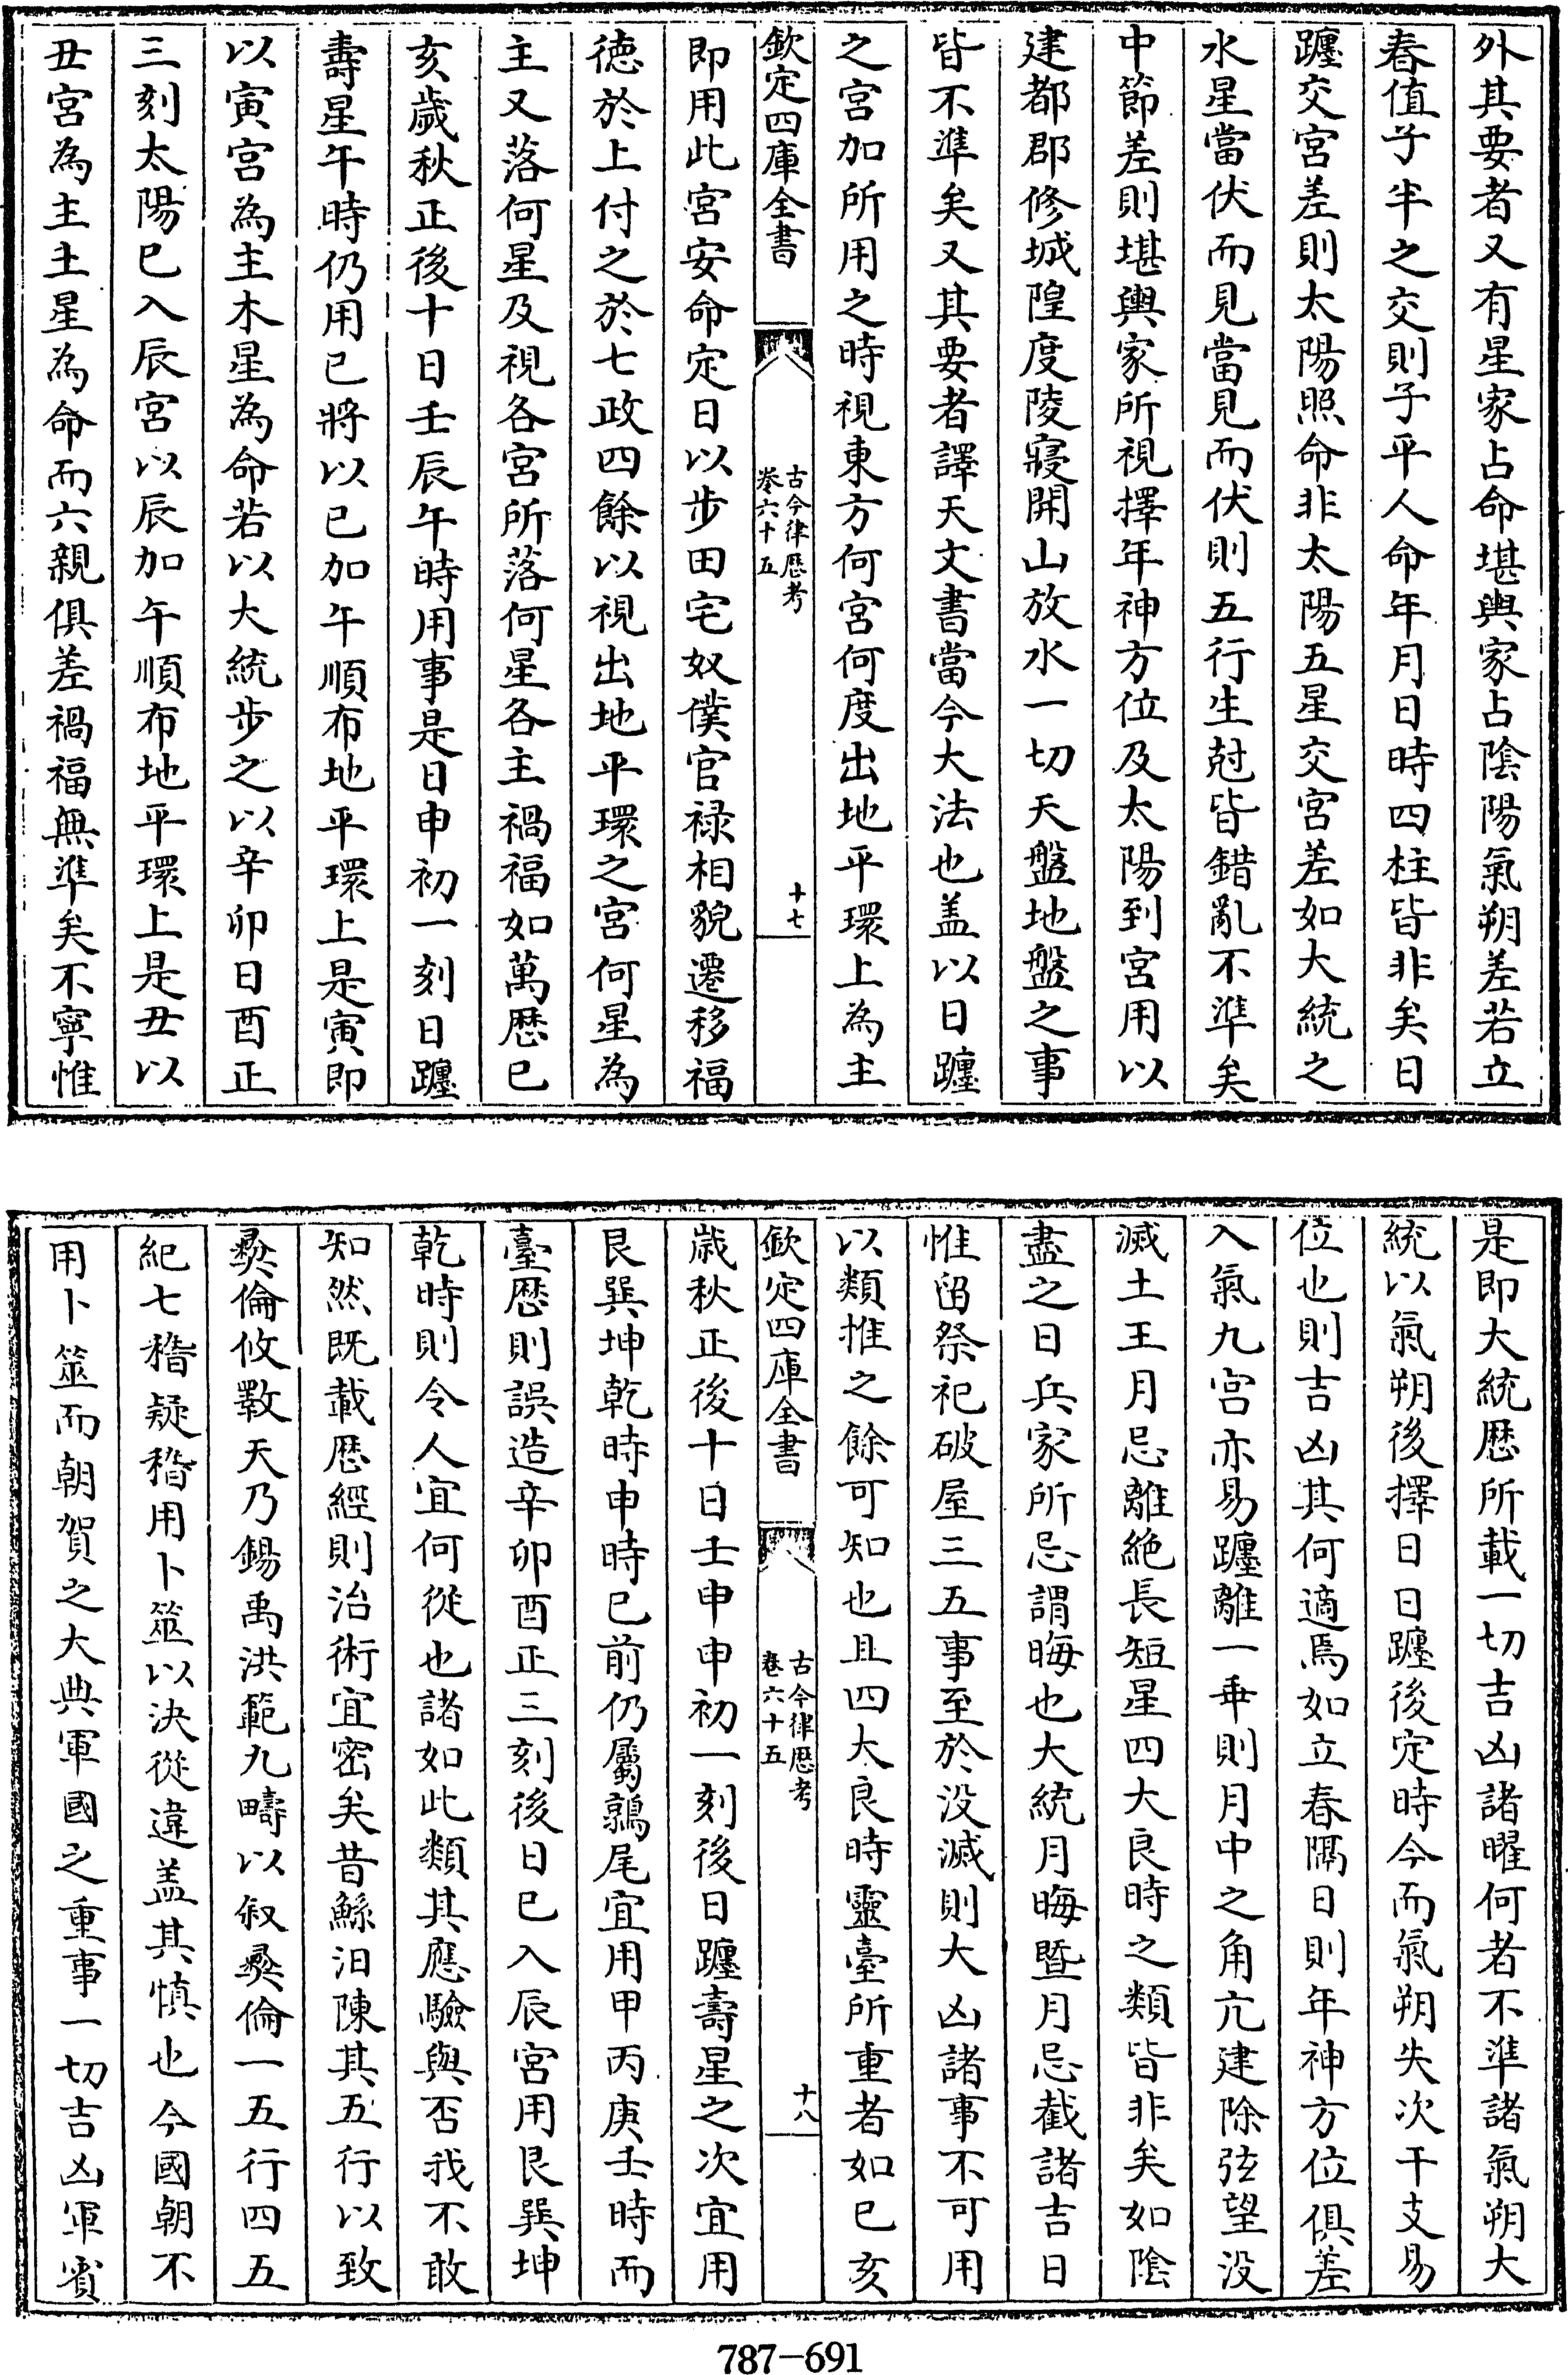 外其要者又有星家占命堪輿家占陰陽氣朔差若立
春值子半之交則子平人命年月日時四柱皆非矣日
躔交宮差則太陽照命非太陽五星交宮差如大統之
水星當伏而見當見而伏則五行生尅皆錯亂不準矣
中節差則堪輿家所視擇年神方位及太陽到宮用以
建都郡修城隍度陵寢開山放水一切天盤地盤之事
皆不準矣又其要者譯天文書當今大法也盖以日躔
之宮加所用之時視東方何宮何度出地平環上為主
欽定四庫全書
古今律歴考
卷六十五
十七
即用此宮安命定日以步田宅奴僕官禄相貌遷移福
德於上付之於七政四餘以視出地平環之宮何星為
主又落何星及視各宮所落何星各主禍福如萬歴已
亥歲秋正後十日壬辰午時用事是日申初一刻日躔
壽星午時仍用巳將以巳加午順布地平環上是寅即
以寅宮為主木星為命若以大統步之以辛卯日酉正
三刻太陽已入辰宮以辰加午順布地平環上是丑以
丑宮為主土星為命而六親俱差禍福無準矣不寧惟
是即大統歴所載一切吉凶諸曜何者不準諸氣朔大
統以氣朔後擇日日躔後定時今而氣朔失次干支易
位也則吉凶其何適焉如立春隅日則年神方位俱差
入氣九宮亦易躔離一乖則月中之角亢建除弦望没
滅土王月忌離絶長短星四大良時之類皆非矣如陰
盡之日兵家所忌謂晦也大統月晦暨月忌截諸吉日
惟留祭祀破屋三五事至於没滅則大凶諸事不可用
以類推之餘可知也且四大良時靈臺所重者如已亥
欽定四庫全書
古今律歴考
卷六十五
十八
歲秋正後十日壬申申初一刻後日躔壽星之次宜用
艮巽坤乾時申時已前仍屬鶉尾宜用甲丙庚壬時而
臺歴則誤造辛卯酉正三刻後日已入辰宮用艮巽坤
乾時則令人宜何從也諸如此類其應驗與否我不敢
知然既載歴經則治術宜密矣昔鯀汩陳其五行以致
彝倫攸斁天乃錫禹洪範九疇以叙彝倫一五行四五
紀七稽疑稽用卜筮以決從違盖其慎也今國朝不
用卜筮而朝賀之大典軍國之重事一切吉凶軍賓
787-691